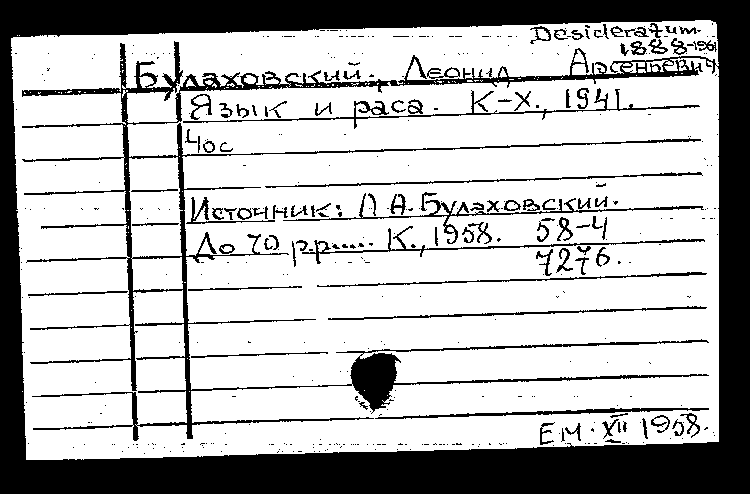 Desideratum
1888-1961
Булаховский, Леонид Арсеньевич
Язык и раса. К-Х., 1941.
40с
Источник: Л.А.Булаховский.
До 70 р.р..... К., 1958. 58-4
7276.
Е.М. XII 1958.